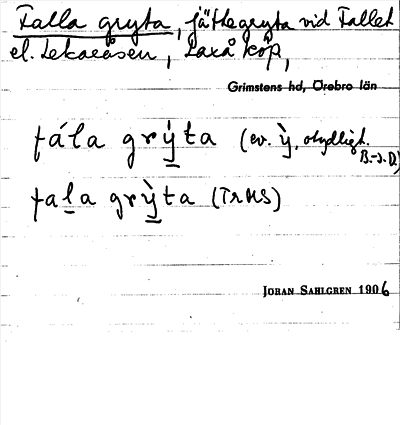 Falla gryta, jättegryta vid Fallet
el. Lekaråsen, Laxå köp,
Grimstens hd, Örebro län
fála grý̲ta (ev. ỳ, otydligh. B.-s. D.)
fal̲a grỳ̲ta (TrMS)
JÖRAN SAHLGREN 1906